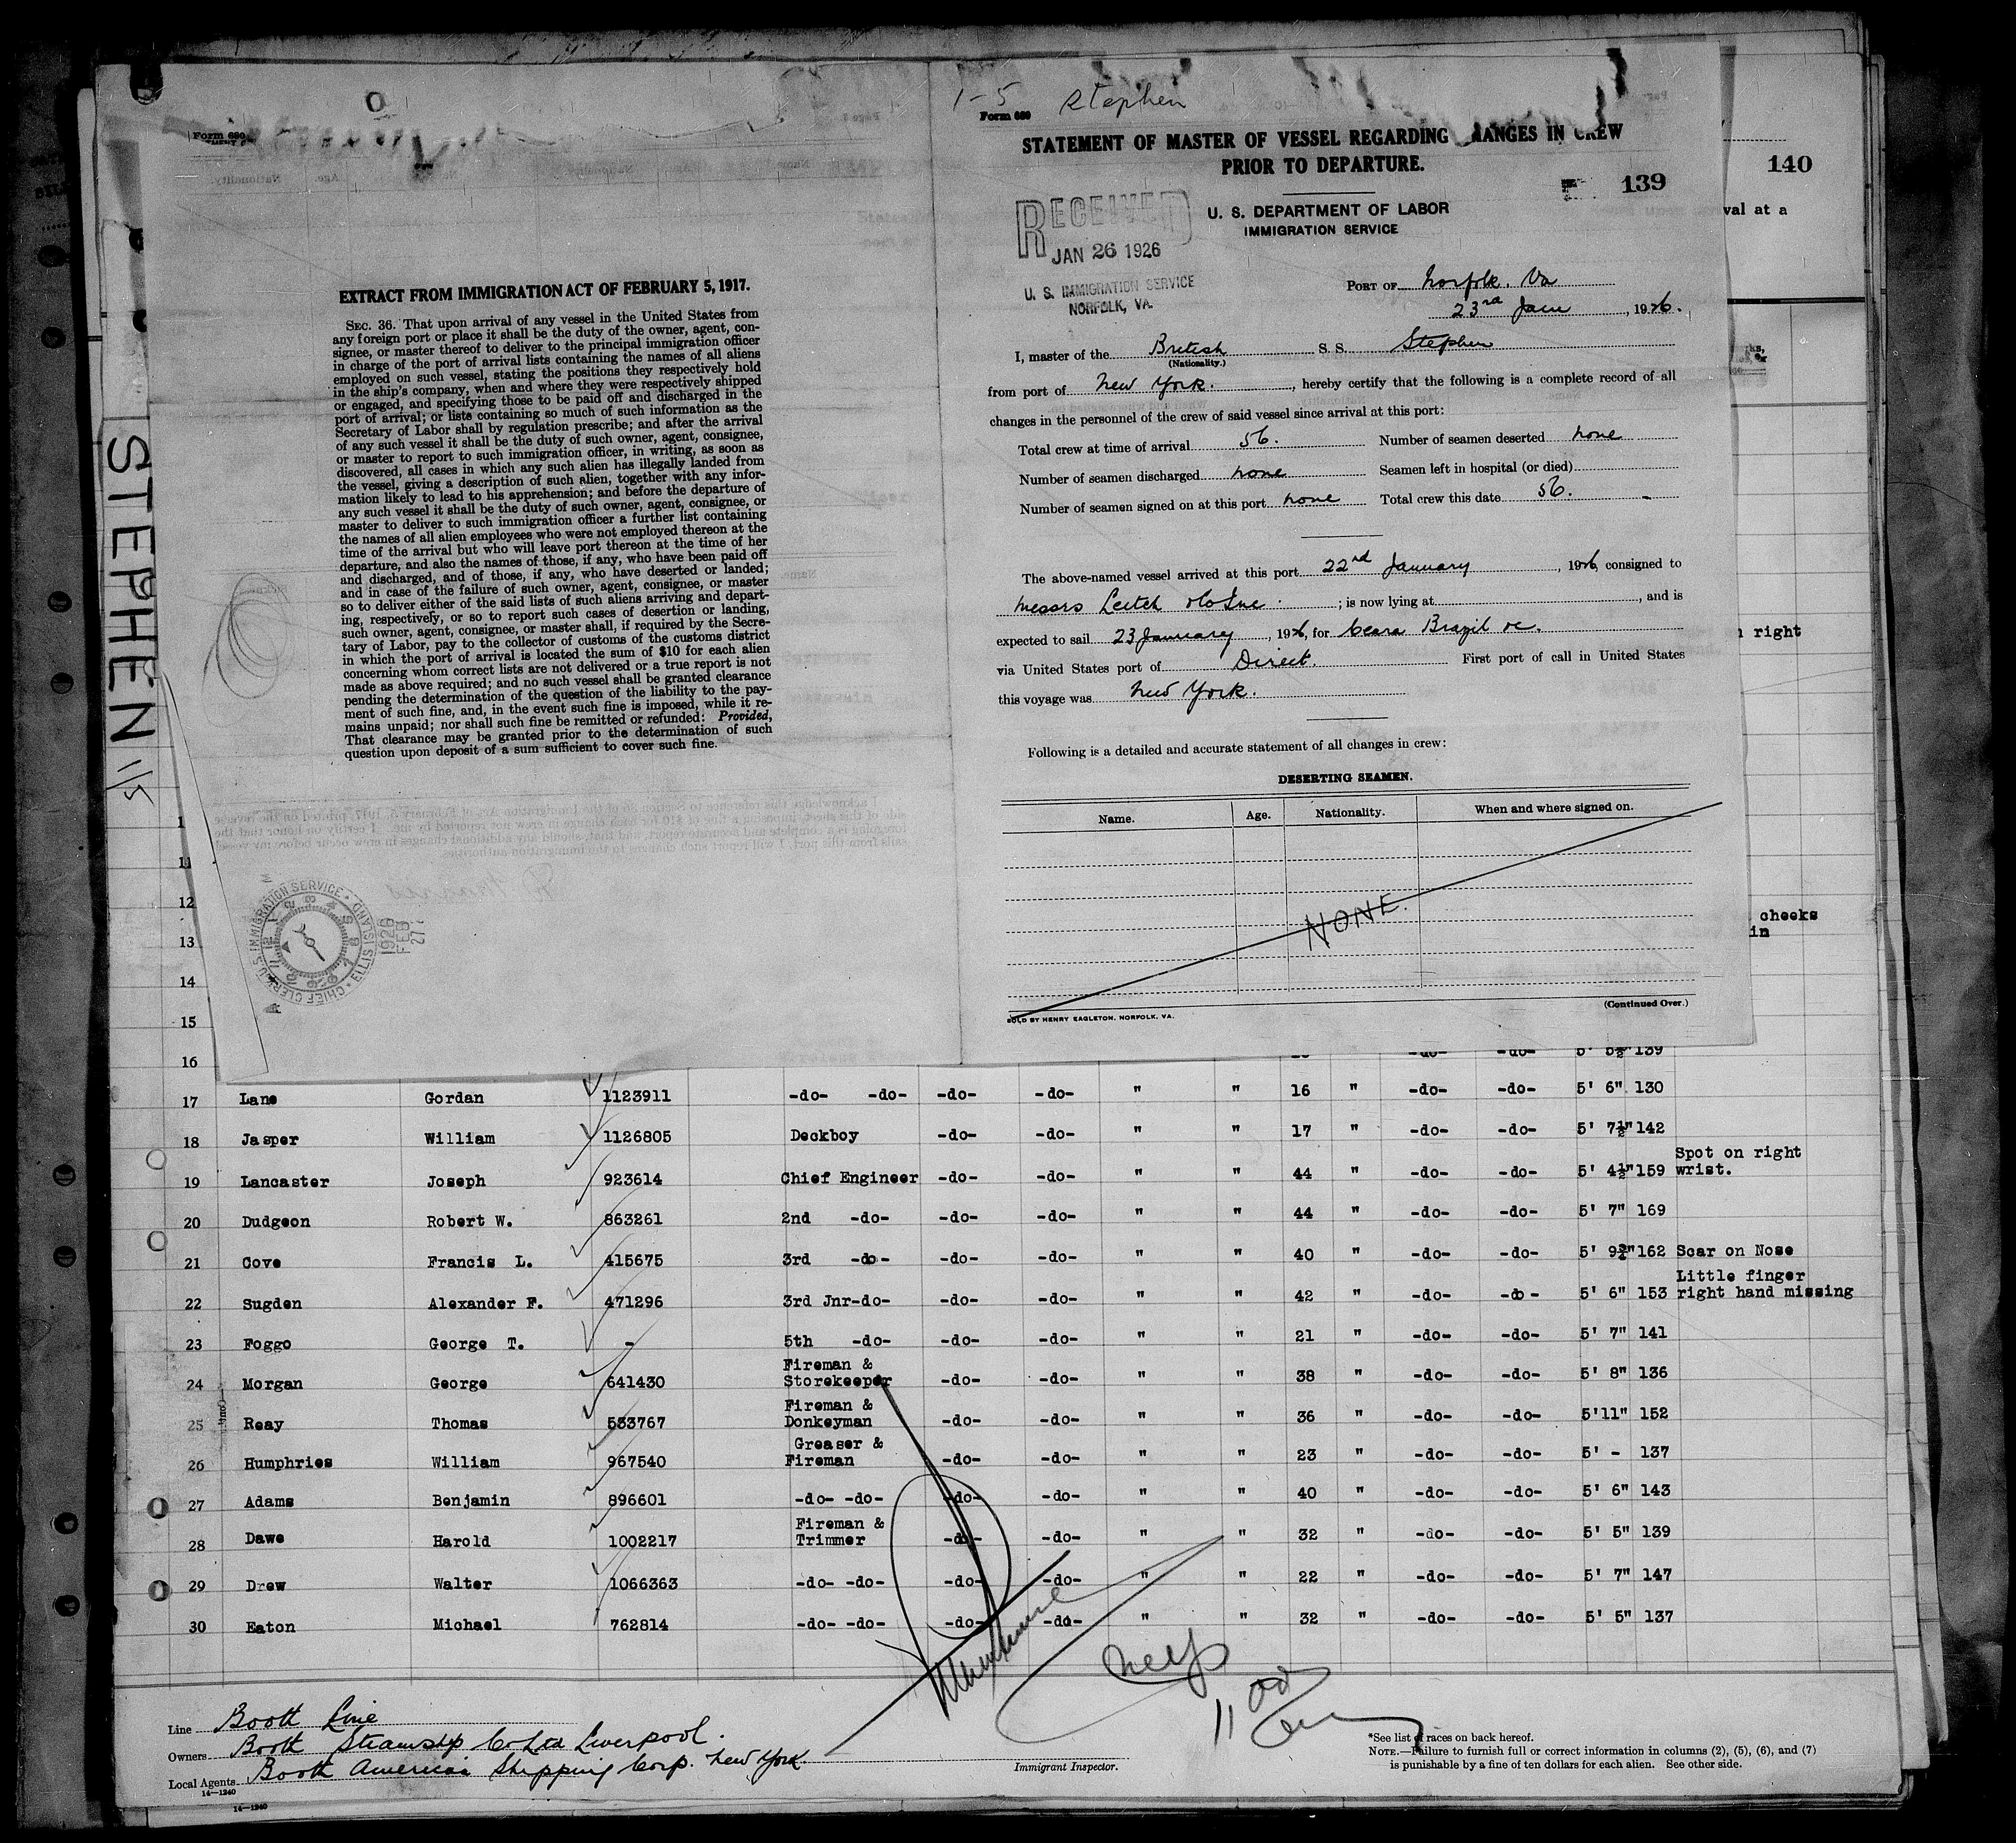 STEPHEN 1/5
Form 680
EXTRACT FROM IMMIGRATION ACT OF FEBRUARY 5, 1917.
SEC. 36. That upon arrival of any vessel in the United States from
any foreign port or place it shall be the duty of the owner, agent, con-
signee, or master thereof to deliver to the principal immigration officer
in charge of the port of arrival lists containing the names of all aliens
employed on such vessel, stating the positions they respectively hold
in the ship's company, when and where they were respectively shipped
or engaged, and specifying those to be paid off and discharged in the
port of arrival; or lists containing so much of such information as the
Secretary of Labor shall by regulation prescribe; and after the arrival
of any such vessel it shall be the duty of such owner, agent, consignee,
or master to report to such immigration officer, in writing, as soon as
discovered, all cases in which any such alien has illegally landed from
the vessel, giving a description of such alien, together with any infor-
mation likely to lead to his apprehension; and before the departure of
any such vessel it shall be the duty of such owner, agent, consignee, or
master to deliver to such immigration officer a further list containing
the names of all alien employees who were not employed thereon at the
time of the arrival but who will leave port thereon at the time of her
departure, and also the names of those, if any, who have been paid off
and discharged, and of those, if any, who have deserted or landed;
and in case of the failure of such owner, agent, consignee, or master
so to deliver either of the said lists of such aliens arriving and depart-
ing, respectively, or so to report such cases of desertion or landing,
such owner, agent, consignee, or master shall, if required by the Secre-
tary of Labor, pay to the collector of customs of the customs district
in which the port of arrival is located the sum of $10 for each alien
concerning whom correct lists are not delivered or a true report is not
made as above required; and no such vessel shall be granted clearance
pending the determination of the question of the liability to the pay-
ment of such fine, and, in the event such fine is imposed, while it re-
mains unpaid; nor shall such fine be remitted or refunded: Provided,
That clearance may be granted prior to the determination of such
question upon deposit of a sum sufficient to cover such fine.
CHIEF CLERK U.S. IMMIGRATION SERVICE ELLIS ISLAND
1926 FEB 27
1-5 Stephen
Form 680
STATEMENT OF MASTER OF VESSEL REGARDING HANGES IN CREW
PRIOR TO DEPARTURE.
139
140
U. S. DEPARTMENT OF LABOR
IMMIGRATION SERVICE
val at a
RECEIVED
JAN 26 1926
U. S. IMMIGRATION SERVICE
NORFOLK, VA.
PORT OF Norfolk. Va
23rd Jany, 1926.
I, master of the British S. S. Stephen
(Nationality.)
from port of New York., hereby certify that the following is a complete record of all
changes in the personnel of the crew of said vessel since arrival at this port:
Total crew at time of arrival 56. Number of seamen deserted none
Number of seamen discharged none Seamen left in hospital (or died)
Number of seamen signed on at this port none Total crew this date 56.
The above-named vessel arrived at this port 22nd January, 1926, consigned to
Messrs Leitch & Co Inc.; is now lying at, and is
expected to sail 23 January, 1926, for Ceara Brazil
via United States port of Direct. First port of call in United States
this voyage was New York.
right
Following is a detailed and accurate statement of all changes in crew:
DESERTING SEAMEN.
Name. Age. Nationality. When and where signed on.
NONE.
cheeks
in
(Continued Over.)
SOLD BY HENRY EAGLETON, NORFOLK, VA.
11
12
13
14
15
16 -do- -do- 5' 5½" 139
17 Lane Gordan 1123911 -do- -do- -do- -do- " " 16 " -do- -do- 5' 6" 130
18 Jasper William 1126805 Deckboy -do- -do- " " 17 " -do- -do- 5' 7½" 142
19 Lancaster Joseph 923614 Chief Engineer -do- -do- " " 44 " -do- -do- 5' 4½" 159 Spot on right wrist.
20 Dudgeon Robert W. 863261 2nd -do- -do- -do- " " 44 " -do- -do- 5' 7" 169
21 Cove Francis L. 415675 3rd -do- -do- -do- " " 40 " -do- -do- 5' 9¾" 162 Scar on Nose
22 Sugden Alexander F. 471296 3rd Jnr-do- -do- -do- " " 42 " -do- -do- 5' 6" 153 Little finger right hand missing
23 Foggo George T. - 5th -do- -do- -do- " " 21 " -do- -do- 5' 7" 141
24 Morgan George 641430 Fireman & Storekeeper -do- -do- " " 38 " -do- -do- 5' 8" 136
25 Reay Thomas 553767 Fireman & Donkeyman -do- -do- " " 36 " -do- -do- 5'11" 152
26 Humphries William 967540 Greaser & Fireman -do- -do- " " 23 " -do- -do- 5' - 137
27 Adams Benjamin 896601 -do- -do- -do- -do- " " 40 " -do- -do- 5' 6" 143
28 Dawe Harold 1002217 Fireman & Trimmer -do- -do- " " 32 " -do- -do- 5' 5" 139
29 Drew Walter 1066363 -do- -do- -do- -do- " " 22 " -do- -do- 5' 7" 147
30 Eaton Michael 762814 -do- -do- -do- -do- " " 32 " -do- -do- 5' 5" 137
Line Booth Line
Owners Booth Steamship Co Ltd Liverpool.
Local Agents Booth American Shipping Corp. New York.
14—1240
14—1240
Immigrant Inspector.
*See list of races on back hereof.
NOTE.—Failure to furnish full or correct information in columns (2), (5), (6), and (7)
is punishable by a fine of ten dollars for each alien. See other side.